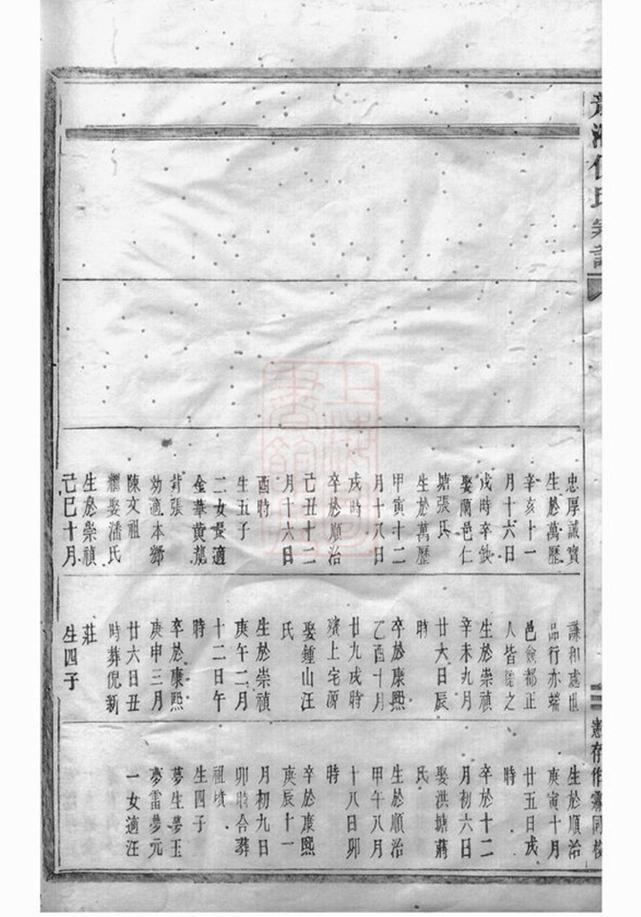 忠厚誠實
生於萬歷
辛亥十一
月十六日
戌時辛欽
娶蘭邑仁
塘張氏
生於萬歷
甲寅十二
月十八日
戌時
卒於順治
己丑十二
月十六日
酉時
生五子
二女長適
金華黃龍
背張
幼適本鄉
陳文祖
繼娶潘氏
生於崇禎
己巳十月
謙和處世
品行亦端
邑僉都正
人皆
之
生於崇禎
辛未九月
廿六日辰
時
卒於康熙
乙酉十月
廿九戌時
殯上宅源
娶鍾山汪
氏
生於崇禎
庚午二月
十二日午
時
卒於康熙
庚申三月
廿六日丑
時葬倪新
莊
生四子
生於順治
庚寅十月
廿五日戌
時
卒於十二
月初六日
娶洪塘蔣
氏
生於順治
甲午八月
十八日卯
時
卒於康熙
庚辰十一
月初九日
卯時合葬
祖墳
生四子
夢生夢玉
夢雷夢元
一女適汪